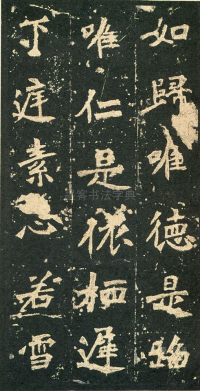 如歸唯德是蹈
唯仁是依栖遲
下廷素心若雪